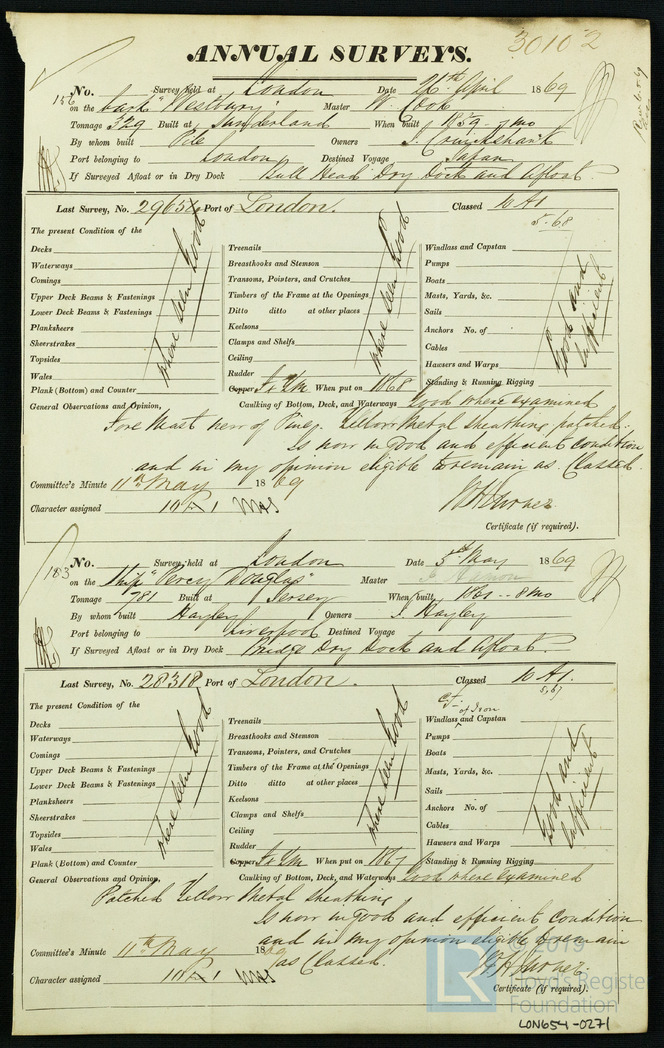 30102
ANNUAL SURVEYS.
156
No. Survey held at London Date 26th April 1869
on the bark "Westbury" Master W. Cook
Tonnage 329 Built at Sunderland When built 1859 - 7 mo
By whom built Pile Owners J. Cruickshank
Port belonging to London Destined Voyage Japan
If Surveyed Afloat or in Dry Dock Bull Head Dry Dock and Afloat.
Last Survey, No. 29654 Port of London. Classed 10 A1
5-68
The present Condition of the
Decks
Waterways
Comings
Upper Deck Beams & Fastenings
Lower Deck Beams & Fastenings
Planksheers
Sheerstrakes
Topsides
Wales
Plank (Bottom) and Counter
where seen Good
Treenails
Breasthooks and Stemson
Transoms, Pointers, and Crutches
Timbers of the Frame at the Openings
Ditto ditto at other places
Keelsons
Clamps and Shelfs
Ceiling
Rudder
Copper When put on 1868
where seen Good
Windlass and Capstan
Pumps
Boats
Masts, Yards, &c.
Sails
Anchors No. of
Cables
Hawsers and Warps
Standing & Running Rigging
Good and Sufficient
General Observations and Opinion, Caulking of Bottom, Deck, and Waterways Good where examined
Fore Mast new of Pine. Yellow Metal Sheathing patched.
Is now in Good and efficient condition
and in my opinion eligible to remain as Classed.
Committee's Minute 11th May 1869
Character assigned 10 A 1
Certificate (if required).
183
No. Survey held at London Date 5th May 1869
on the Ship "Percy Douglas" Master
Tonnage 781 Built at Jersey When built 1861 - 8 mo
By whom built Hayley Owners J. Hayley
Port belonging to Liverpool Destined Voyage
If Surveyed Afloat or in Dry Dock Bridge Dry Dock and Afloat.
Last Survey, No. 28318 Port of London. Classed 10 A1.
5,67
The present Condition of the
of Iron
Decks
Waterways
Comings
Upper Deck Beams & Fastenings
Lower Deck Beams & Fastenings
Planksheers
Sheerstrakes
Topsides
Wales
Plank (Bottom) and Counter
where seen Good
Treenails
Breasthooks and Stemson
Transoms, Pointers, and Crutches
Timbers of the Frame at the Openings
Ditto ditto at other places
Keelsons
Clamps and Shelfs
Ceiling
Rudder
Copper When put on 1867
where seen Good
Windlass and Capstan
Pumps
Boats
Masts, Yards, &c.
Sails
Anchors No. of
Cables
Hawsers and Warps
Standing & Running Rigging
Good and Sufficient
General Observations and Opinion, Caulking of Bottom, Deck, and Waterways Good where examined
Patched Yellow Metal Sheathing
Is now in Good and efficient Condition
and in my opinion eligible to remain
as Classed.
Committee's Minute 11th May 1869
Character assigned 10 A 1
Certificate (if required).
© 2019
LR Lloyd's Register
Foundation
LON654-0271